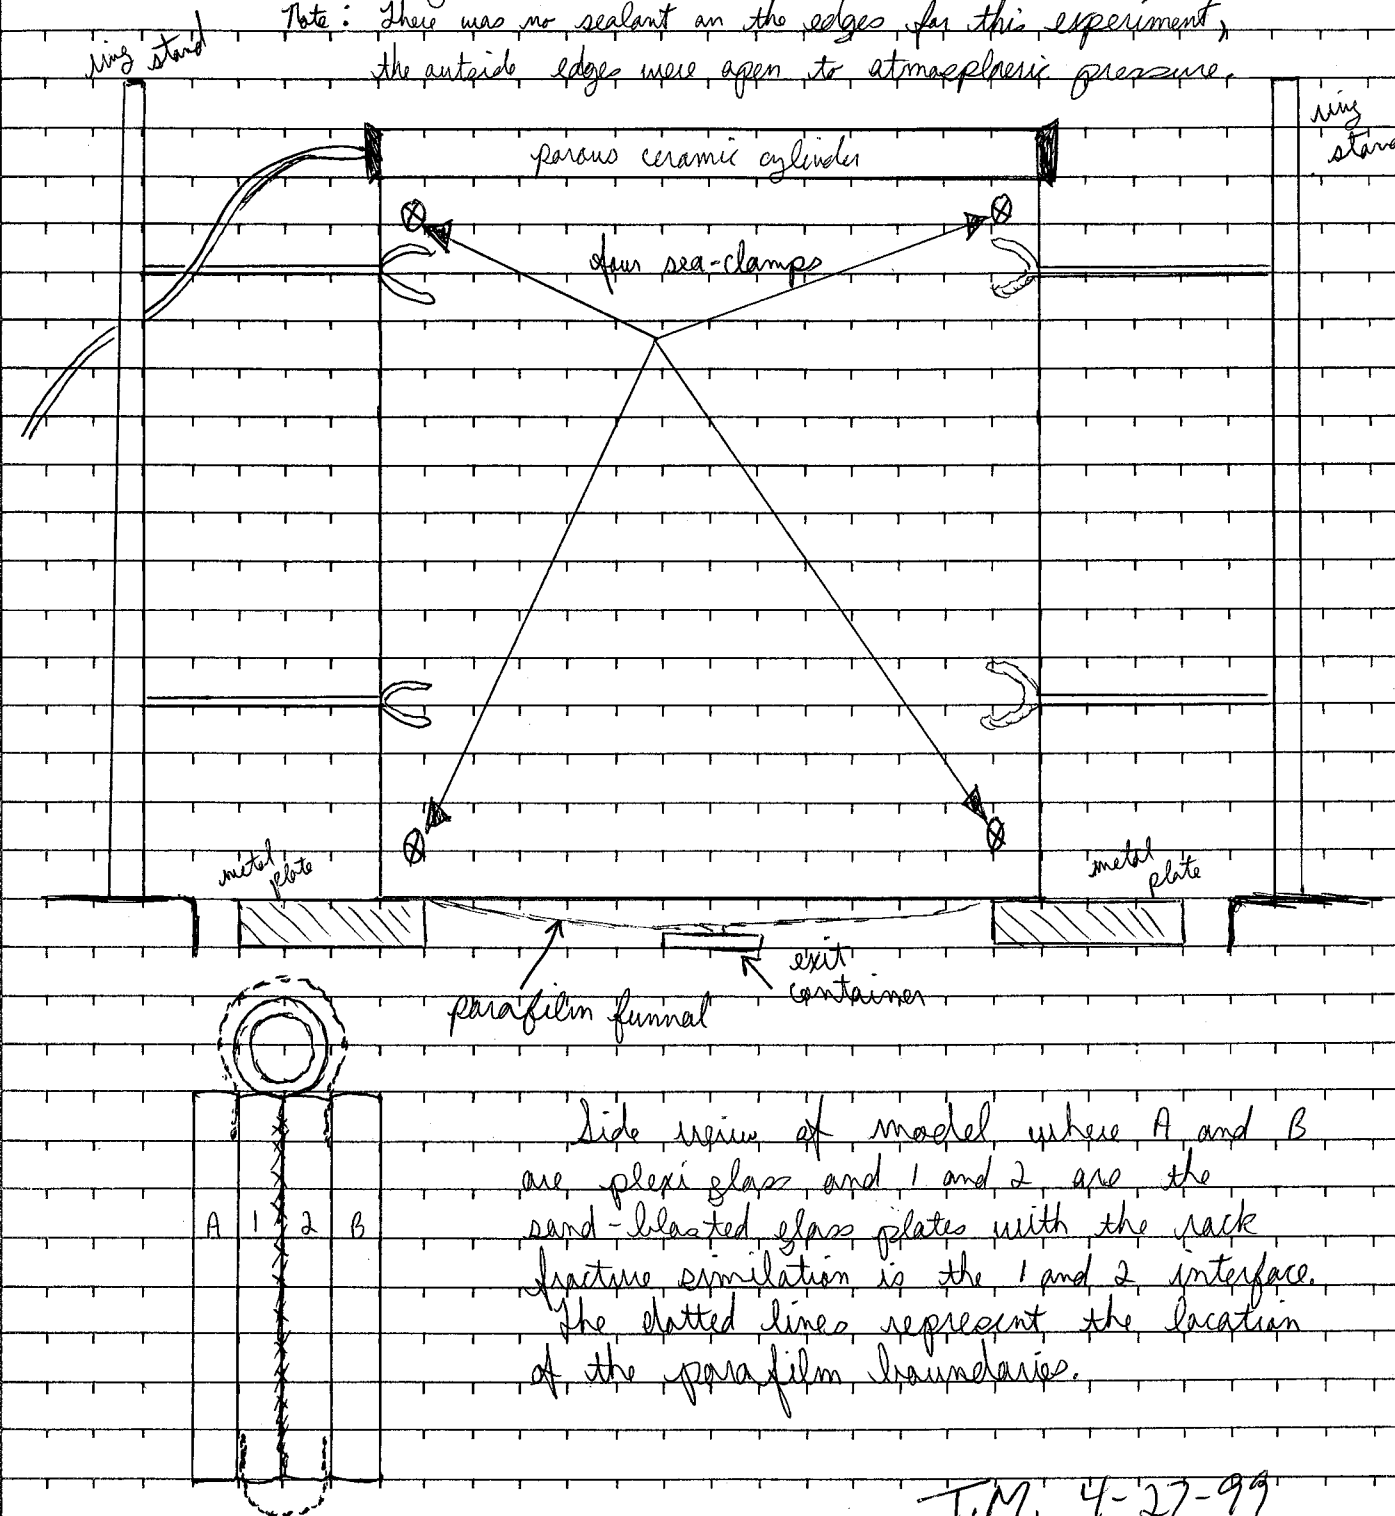 Note: There was no sealant on the edges for this experiment,
the outside edges were open to atmospheric pressure.
ring stand
ring
stand
porous ceramic cylinder
four sea-clamps
metal
plate
metal
plate
exit
container
parafilm funnal
Side veiw of model where A and B
are plexi glass and 1 and 2 are the
A 1 2 B
sand-blasted glass plates with the rock
fracture similation is the 1 and 2 interface.
The dotted lines represent the location
of the parafilm boundaries.
T.M. 4-27-99